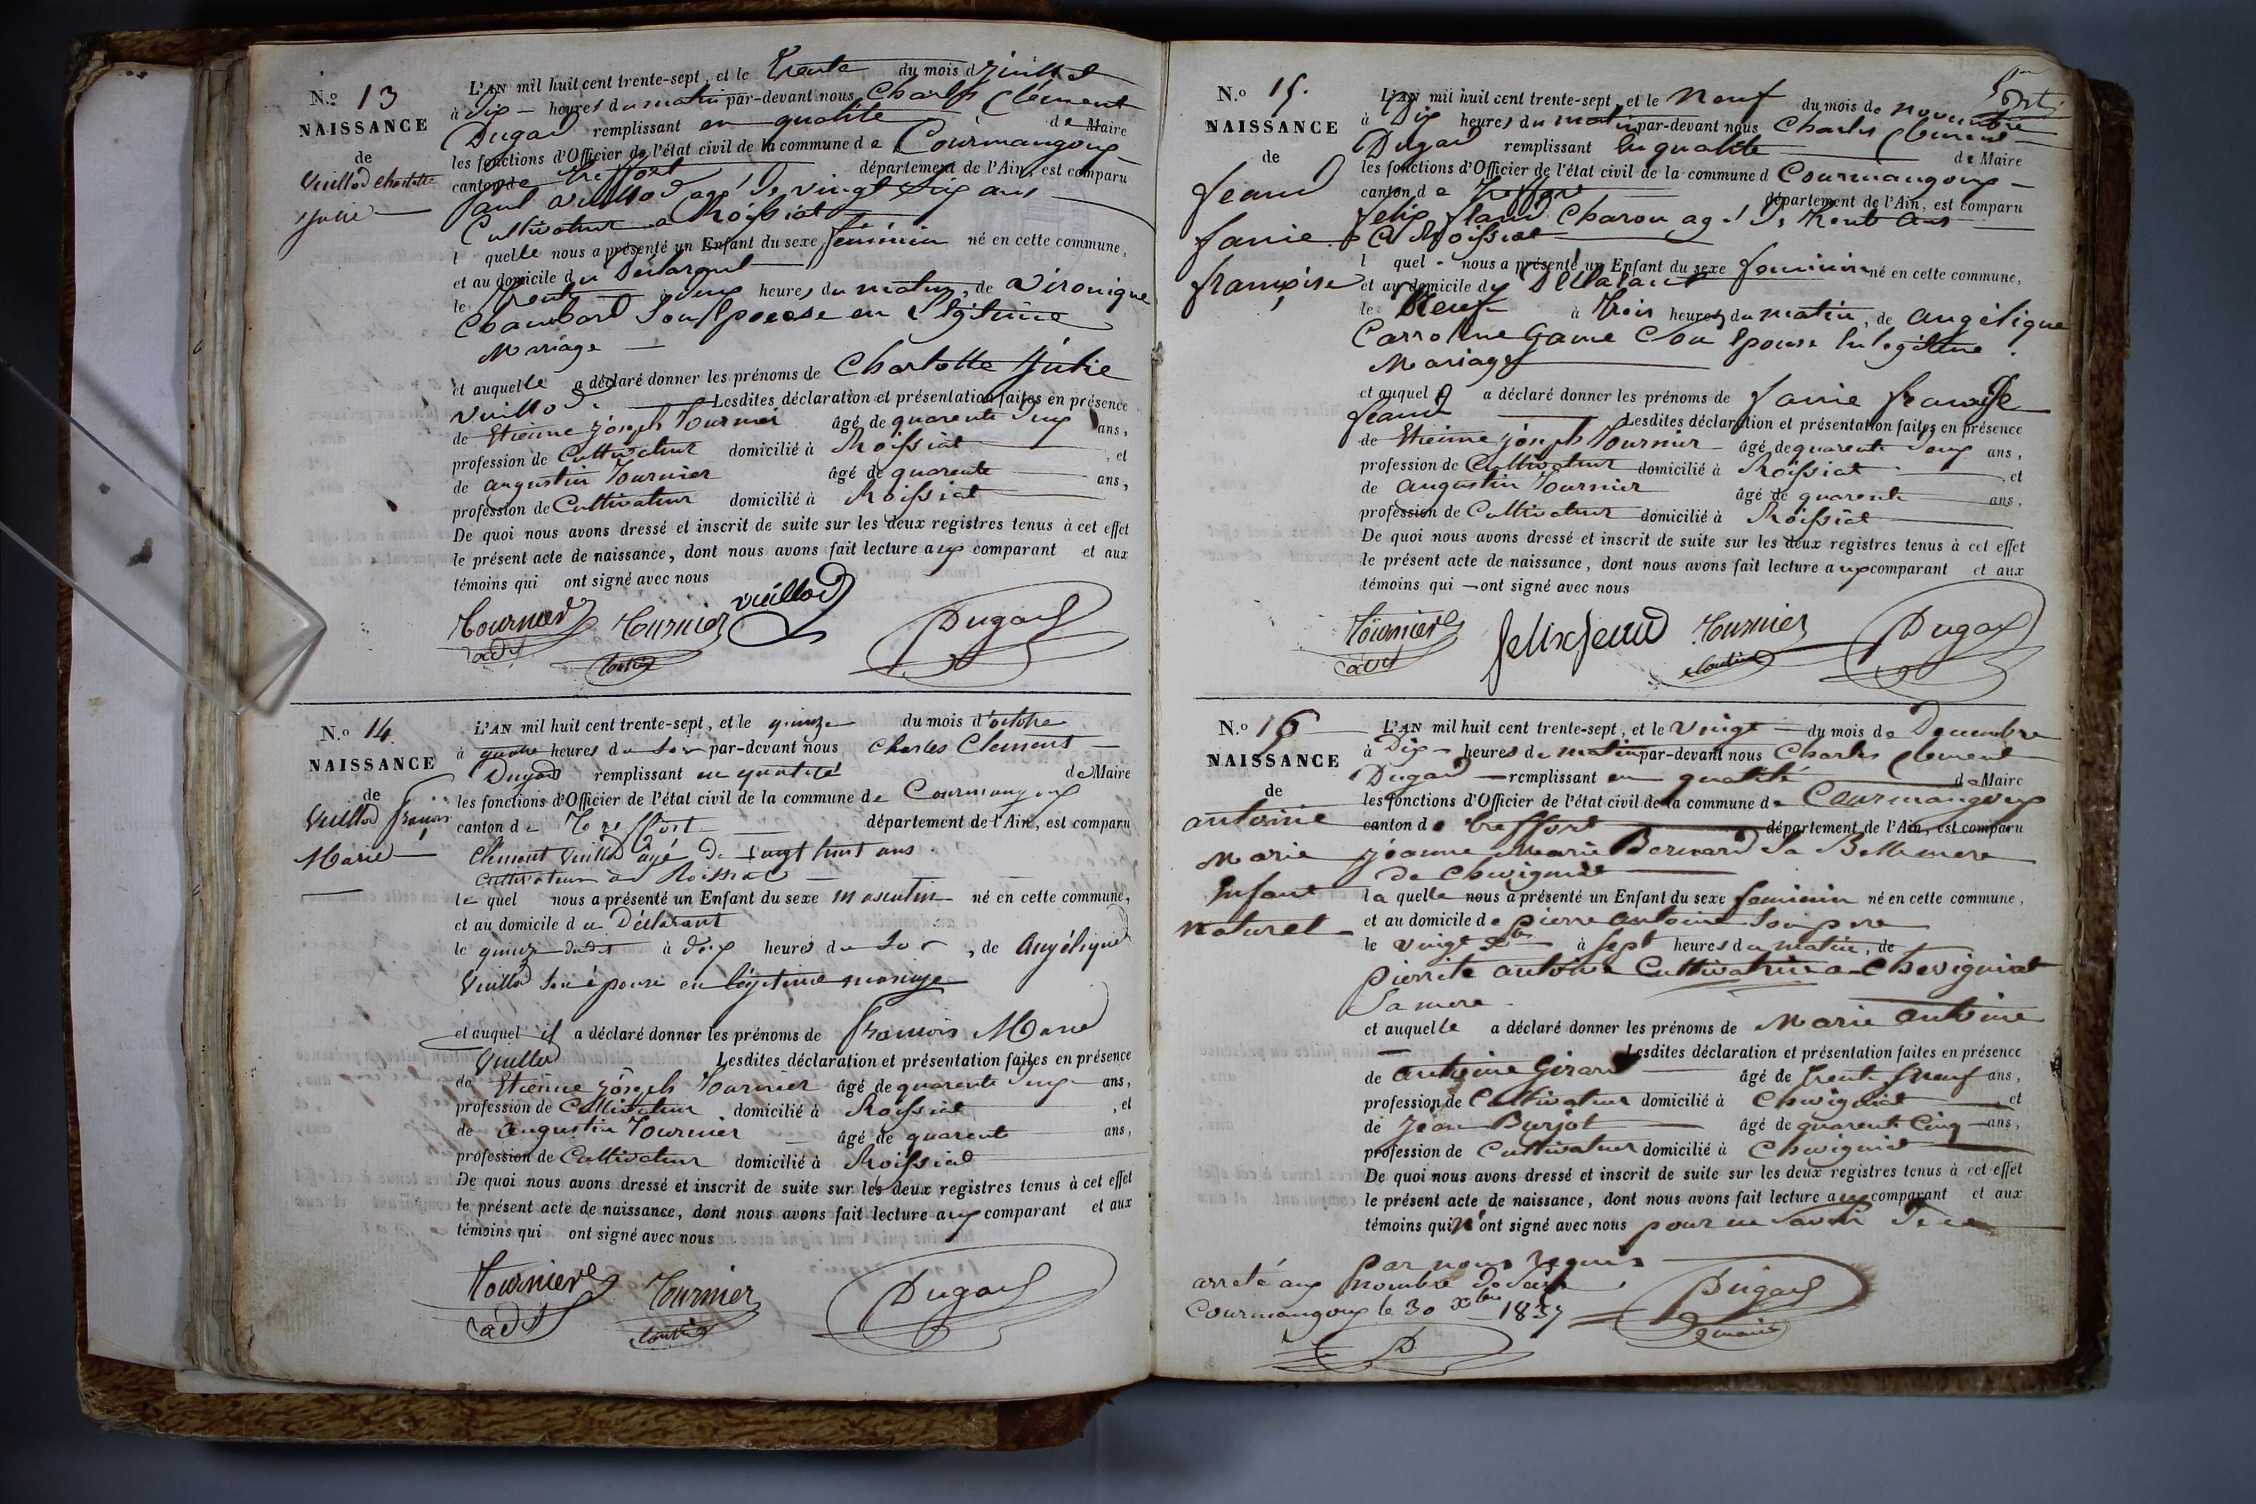 N.o 13
NAISSANCE
de
Vuillod Charlotte
Julie
L'AN mil huit cent trente-sept, et le trente du mois d Juillet
à dix heures du matin par-devant nous Charles Clement
Dugad remplissant en qualité de Maire
les fonctions d'Officier de l'état civil de la commune de Courmangoux
canton de Treffort département de l'Ain, est comparu
Paul Vuillod agé de vingt six ans
Cultivateur a Roissiat
l quelle nous a présenté un Enfant du sexe féminin né en cette commune,
et au domicile du
le trente à deux heures du matin, de Vironique
Chambard son Epouse en Légitime
Mariage
et auquelle a déclaré donner les prénoms de Charlotte Julie
Vuillod. Lesdites déclaration et présentation faites en présence
de Etienne Joseph Tournier âgé de quarente deux ans,
profession de Cultivateur domicilié à Roissiat , et
de augustin Tournier âgé de quarente ans,
profession de Cultivateur domicilié à Roissiat
De quoi nous avons dressé et inscrit de suite sur les deux registres tenus à cet effet
le présent acte de naissance, dont nous avons fait lecture aux comparant et aux
témoins qui ont signé avec nous
Tournier Tournier Vuillod Dugad
adt
N.o 14.
NAISSANCE
de
Vuillod François
Marie
L'AN mil huit cent trente-sept, et le quinze du mois d'octobre
à quatre heures du soir par-devant nous Charles Clement
Dugad remplissant en qualité de Maire
les fonctions d'Officier de l'état civil de la commune de Courmangoux
canton de Treffort département de l'Ain, est comparu
Clément Vuillod âgé de vingt huit ans
Cultivateur à Roissiat
le quel nous a présenté un Enfant du sexe masculin né en cette commune,
et au domicile du Déclarant
le quinze dudit à dix heures du soir, de Angélique
Vuillod son épouse en légitime mariage
et auquel il a déclaré donner les prénoms de François Marie
Vuillod Lesdites déclaration et présentation faites en présence
de Etienne Joseph Tournier âgé de quarente deux ans,
profession de Cultivateur domicilié à Roissiat , et
de augustin Tournier âgé de quarente ans,
profession de Cultivateur domicilié à Roissiat
De quoi nous avons dressé et inscrit de suite sur les deux registres tenus à cet effet
le présent acte de naissance, dont nous avons fait lecture aux comparant et aux
témoins qui ont signé avec nous
Tournier Tournier Dugad
adt
N.o 15.
NAISSANCE
de
Jeand
fanie
françoise
L'AN mil huit cent trente-sept, et le Neuf du mois de novembre
à Dix heures du matin par-devant nous Charles Clement
Dugad remplissant En qualité de Maire
les fonctions d'Officier de l'état civil de la commune d Courmangoux
canton de Treffort département de l'Ain, est comparu
felix Jeand Charon agé De trente ans
a Roissiat
l quel nous a présenté un Enfant du sexe feminin né en cette commune,
et au domicile du Déclarant
le Neuf à trois heures du matin, de angelique
Carroline Game Son Epouse En legitime
Mariage
et auquel a déclaré donner les prénoms de fanie françoise
Jeand Lesdites déclaration et présentation faites en présence
de Etienne Joseph Tournier âgé de quarente deux ans,
profession de Cultivateur domicilié à Roissiat , et
de augustin Tournier âgé de quarente ans,
profession de Cultivateur domicilié à Roissiat
De quoi nous avons dressé et inscrit de suite sur les deux registres tenus à cet effet
le présent acte de naissance, dont nous avons fait lecture aux comparant et aux
témoins qui ont signé avec nous
Tournier felix Jeand Tournier Dugad
adt
N.o 16
NAISSANCE
de
antoine
Marie
Enfant
naturel
L'AN mil huit cent trente-sept, et le vingt du mois de Decembre
à Dix heures de matin par-devant nous Charles Clement
Dugad remplissant en qualité de Maire
les fonctions d'Officier de l'état civil de la commune de Courmangoux
canton de treffort département de l'Ain, est comparu
jeanne Marie Bernard Sa Belle mere
de Chevigniat
la quelle nous a présenté un Enfant du sexe feminin né en cette commune,
et au domicile de pierre antoine Son pere
le vingt Xbre à sept heures du matin, de
pierrite antoine Cultivatrice a Chevigniat
Sa mere
et auquelle a déclaré donner les prénoms de Marie antoine
Lesdites déclaration et présentation faites en présence
de antoine Girard âgé de trente neuf ans,
profession de Cultivateur domicilié à Chevigniat , et
de Jean Burjot âgé de quarente Cinq ans,
profession de Cultivateur domicilié à Chevigniat
De quoi nous avons dressé et inscrit de suite sur les deux registres tenus à cet effet
le présent acte de naissance, dont nous avons fait lecture aux comparant et aux
témoins qui n'ont signé avec nous pour ne savoir De ce
par nous requis
arreté aux nombre de seize
Courmangoux le 30 Xbre 1837
Dugad
maire